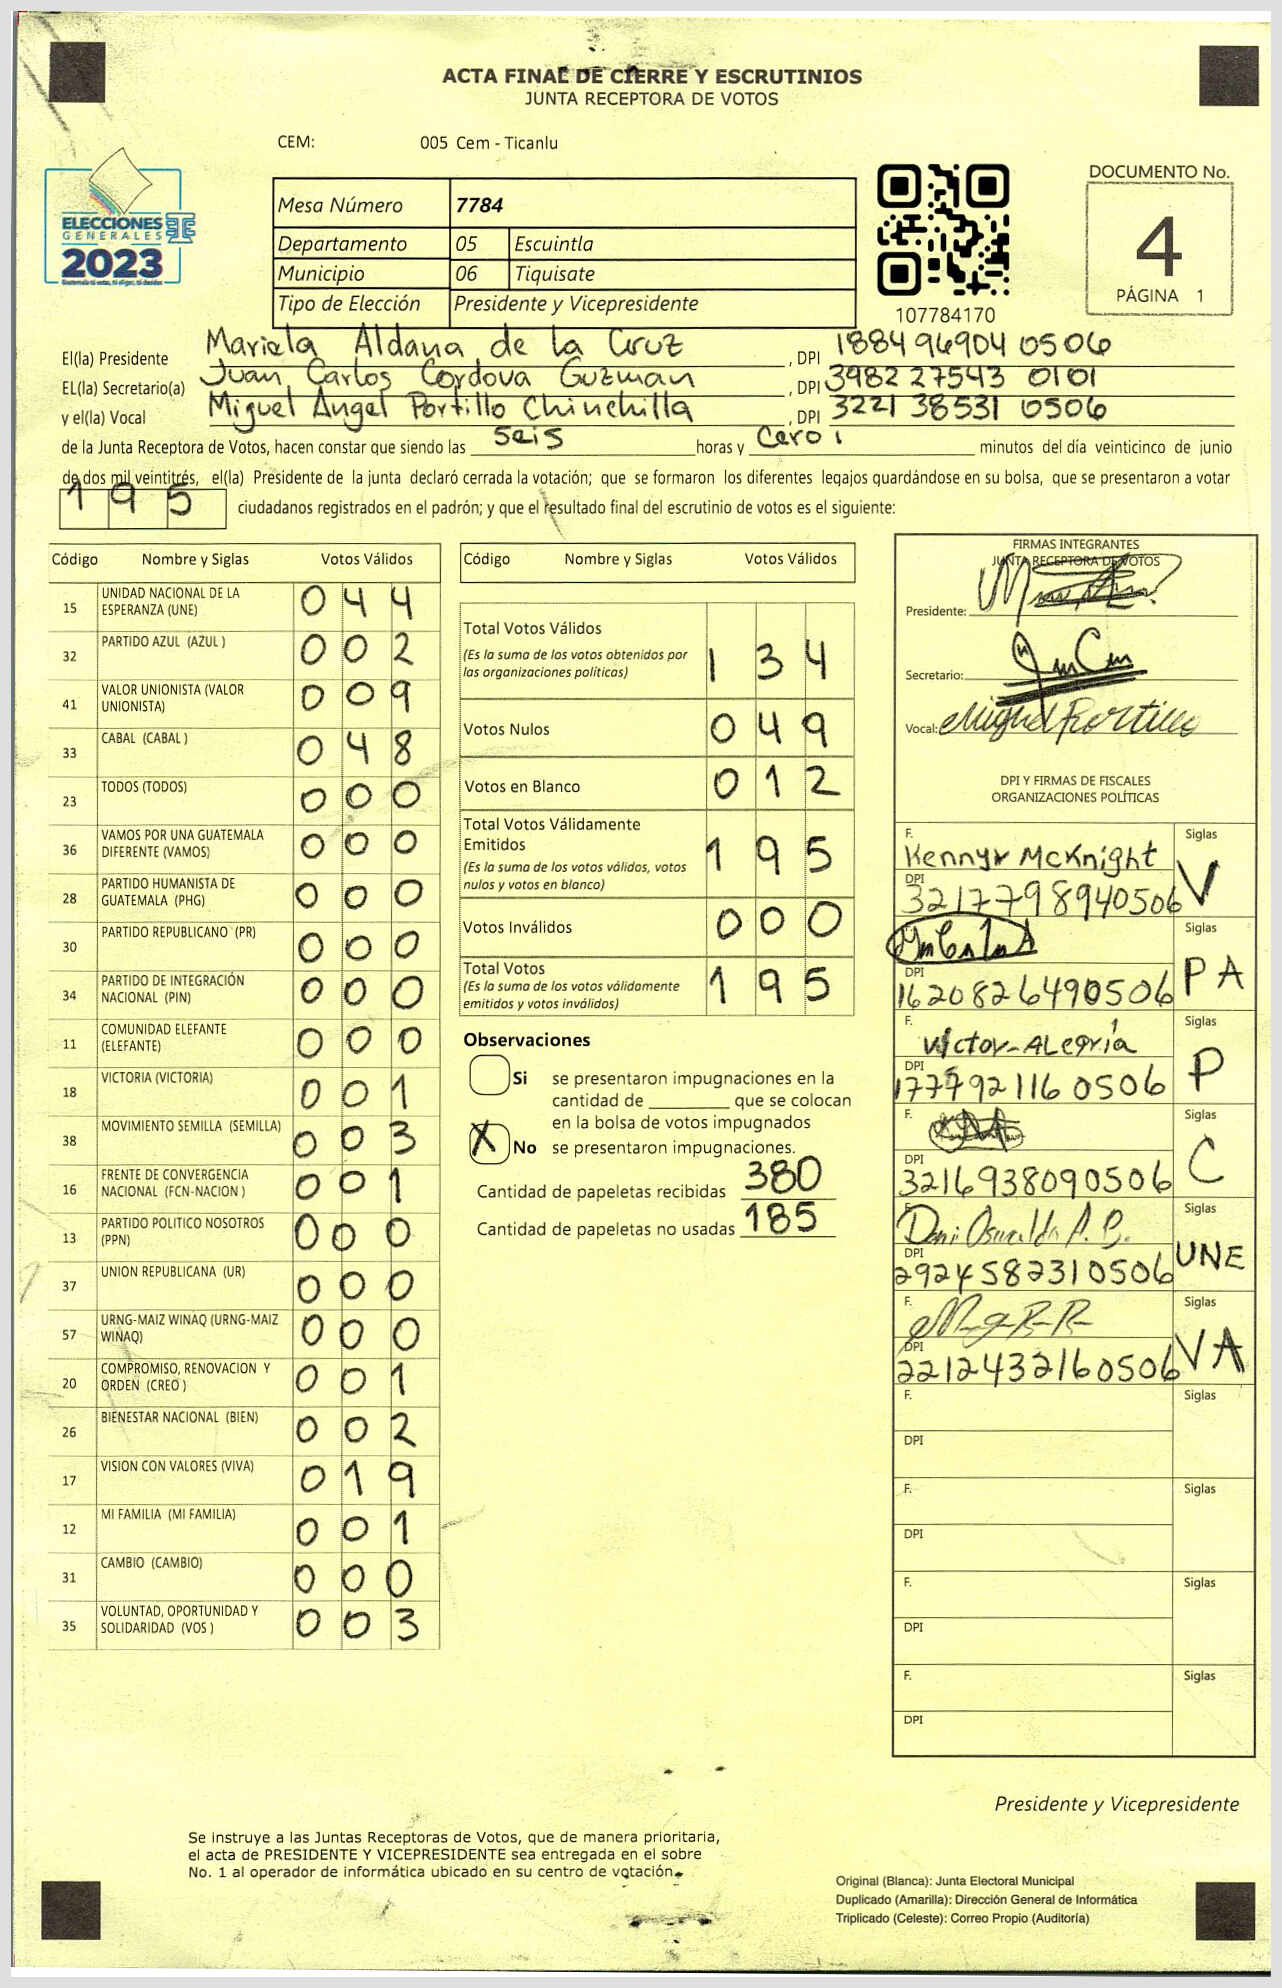 ACTA FINAL DE CIERRE Y ESCRUTINIOS
JUNTA RECEPTORA DE VOTOS
CEM: 005 Cem - Ticanlu
ELECCIONES
GENERALES
2023
Mesa Número 7784
Departamento 05 Escuintla
Municipio 06 Tiquisate
Tipo de Elección Presidente y Vicepresidente
107784170
DOCUMENTO No.
4
PÁGINA 1
El(la) Presidente Mariela Aldana de la Cruz, DPI 1884 96904 0506
EL(la) Secretario(a) Juan Carlos Cordova Guzman, DPI 3982 27543 0101
y el(la) Vocal Miguel Angel Portillo Chinchilla, DPI 3221 38531 0506
de la Junta Receptora de Votos, hacen constar que siendo las seis horas y cero minutos del día veinticinco de junio
de dos mil veintitrés, el(la) Presidente de la junta declaró cerrada la votación; que se formaron los diferentes legajos guardándose en su bolsa, que se presentaron a votar
195 ciudadanos registrados en el padrón; y que el resultado final del escrutinio de votos es el siguiente:
Código Nombre y Siglas Votos Válidos
15 UNIDAD NACIONAL DE LA ESPERANZA (UNE) 044
32 PARTIDO AZUL (AZUL ) 002
41 VALOR UNIONISTA (VALOR UNIONISTA) 009
33 CABAL (CABAL ) 048
23 TODOS (TODOS) 000
36 VAMOS POR UNA GUATEMALA DIFERENTE (VAMOS) 000
28 PARTIDO HUMANISTA DE GUATEMALA (PHG) 000
30 PARTIDO REPUBLICANO (PR) 000
34 PARTIDO DE INTEGRACIÓN NACIONAL (PIN) 000
11 COMUNIDAD ELEFANTE (ELEFANTE) 000
18 VICTORIA (VICTORIA) 001
38 MOVIMIENTO SEMILLA (SEMILLA) 003
16 FRENTE DE CONVERGENCIA NACIONAL (FCN-NACION ) 001
13 PARTIDO POLITICO NOSOTROS (PPN) 000
37 UNION REPUBLICANA (UR) 000
57 URNG-MAIZ WINAQ (URNG-MAIZ WINAQ) 000
20 COMPROMISO, RENOVACION Y ORDEN (CREO ) 001
26 BIENESTAR NACIONAL (BIEN) 002
17 VISION CON VALORES (VIVA) 019
12 MI FAMILIA (MI FAMILIA) 001
31 CAMBIO (CAMBIO) 000
35 VOLUNTAD, OPORTUNIDAD Y SOLIDARIDAD (VOS ) 003
Código Nombre y Siglas Votos Válidos
Total Votos Válidos 134
(Es la suma de los votos obtenidos por
las organizaciones políticas)
Votos Nulos 049
Votos en Blanco 012
Total Votos Válidamente
Emitidos 195
(Es la suma de los votos válidos, votos
nulos y votos en blanco)
Votos Inválidos 000
Total Votos 195
(Es la suma de los votos válidamente
emitidos y votos inválidos)
Observaciones
Si se presentaron impugnaciones en la
cantidad de ________ que se colocan
en la bolsa de votos impugnados
X No se presentaron impugnaciones.
Cantidad de papeletas recibidas 380
Cantidad de papeletas no usadas 185
FIRMAS INTEGRANTES
JUNTA RECEPTORA DE VOTOS
Presidente:
Secretario:
Vocal: Miguel Portillo
DPI Y FIRMAS DE FISCALES
ORGANIZACIONES POLÍTICAS
F. Kennyr McKnight Siglas V
DPI 3217798940506
Siglas PA
DPI 1620826490506
F. Victor-Alegría Siglas P
DPI 1777921160506
F. Siglas C
DPI 3216938090506
F. Siglas UNE
DPI 2924582310506
F. Siglas VA
DPI 2212432160506
F. Siglas
DPI
F. Siglas
DPI
F. Siglas
DPI
F. Siglas
DPI
Presidente y Vicepresidente
Se instruye a las Juntas Receptoras de Votos, que de manera prioritaria,
el acta de PRESIDENTE Y VICEPRESIDENTE sea entregada en el sobre
No. 1 al operador de informática ubicado en su centro de votación.
Original (Blanca): Junta Electoral Municipal
Duplicado (Amarilla): Dirección General de Informática
Triplicado (Celeste): Correo Propio (Auditoría)